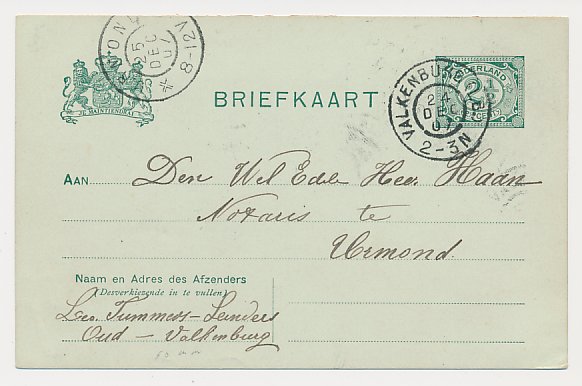 URMOND
25
DEC
07
8-12 V
JE MAINTIENDRAI
BRIEFKAART
VALKENBURG
24
DEC
07
2-3N
NEDERLAND
2½
CENT
AAN
Den Wel Edel Heer Haan
Notaris te
Urmond.
Naam en Adres des Afzenders
(Desverkiezende in te vullen)
Leo. Tummers-Leinders
Oud - Valkenburg